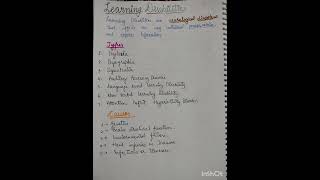 Learning Disabilities
Learning Disabilities are neurological disorders
that affects
and
information
Types
1. Dyslexia
2. Dysgraphia
3. Dyscalculia
4. Auditory Processing Disorder
5. Language based learning Disability
6. Non Verbal learning Disability
7. Attention Deficit Hyperactivity Disorder
Causes
1 Genetics
2 Brain structural function
3 Environmental factors
4 Head injuries or Trauma
5 Infections or Illnesses
InShOt